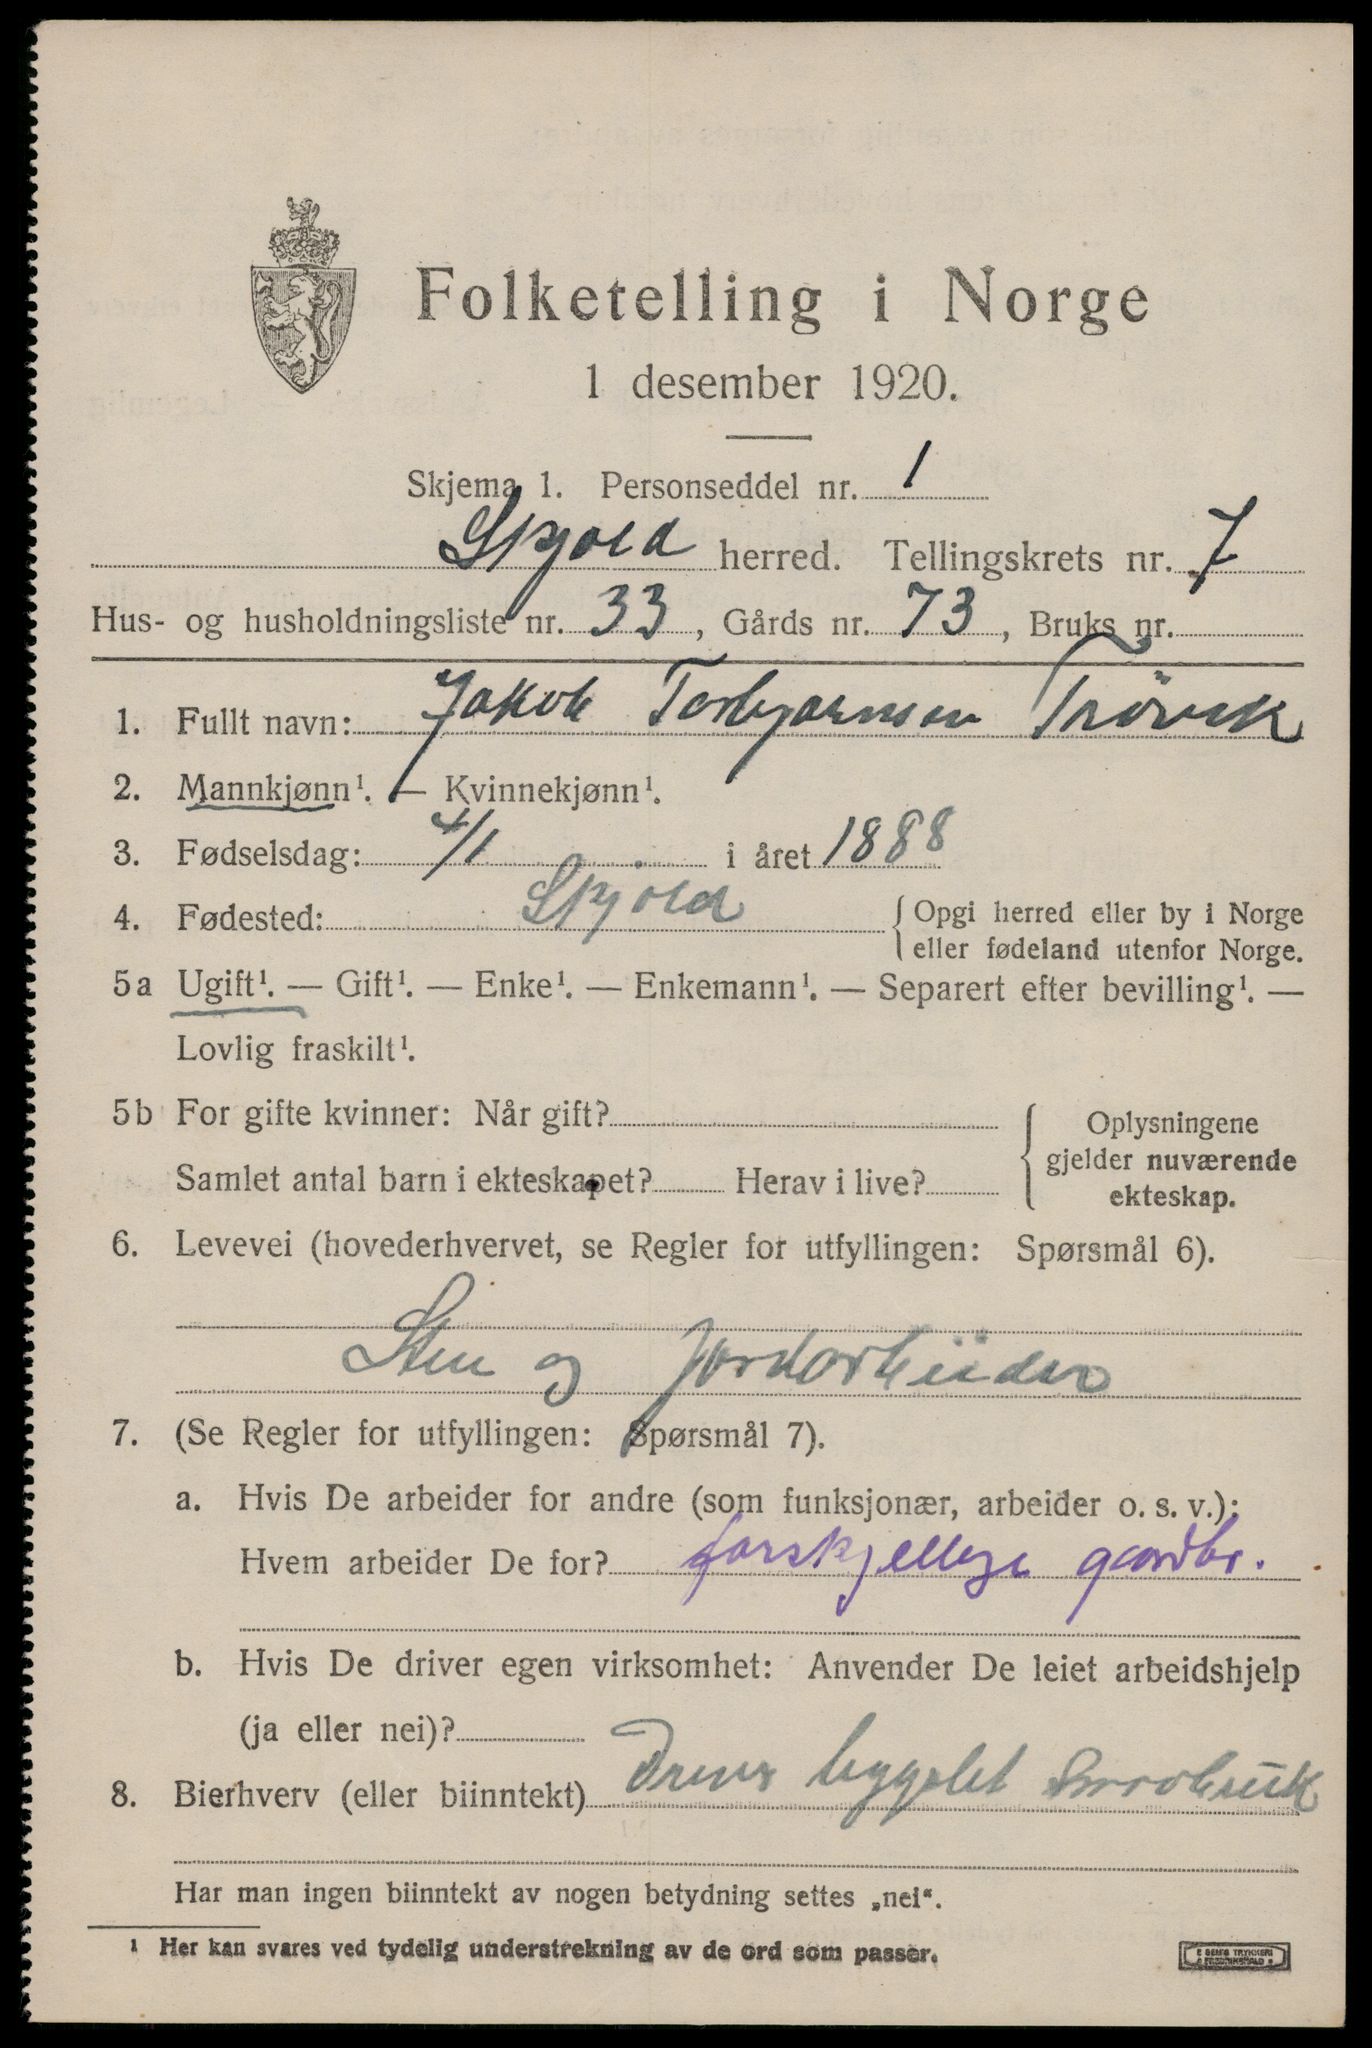 Folketelling i Norge
1 desember 1920.
Skjema 1. Personseddel nr. 1
Skjold herred. Tellingskrets nr. 7
Hus- og husholdningsliste nr. 33, Gårds nr. 73, Bruks nr.
1. Fullt navn: Jakob Torbjørnsen Trøvik
2. Mannkjønn¹. — Kvinnekjønn¹.
3. Fødselsdag: 4/1 i året 1888
4. Fødested: Skjold { Opgi herred eller by i Norge
eller fødeland utenfor Norge.
5a Ugift¹. — Gift¹. — Enke¹. — Enkemann¹. — Separert efter bevilling¹. —
Lovlig fraskilt¹.
5b For gifte kvinner: Når gift? { Oplysningene
gjelder nuværende
Samlet antal barn i ekteskapet? Herav i live?
ekteskap.
6. Levevei (hovederhvervet, se Regler for utfyllingen: Spørsmål 6).
Sten og Jordarbeider
7. (Se Regler for utfyllingen: Spørsmål 7).
a. Hvis De arbeider for andre (som funksjonær, arbeider o. s. v.):
Hvem arbeider De for? forskjellige gardbr.
b. Hvis De driver egen virksomhet: Anvender De leiet arbeidshjelp
(ja eller nei)?
8. Bierhverv (eller biinntekt) bygslet Smaabruk
Har man ingen biinntekt av nogen betydning settes „nei“.
¹ Her kan svares ved tydelig understrekning av de ord som passer.